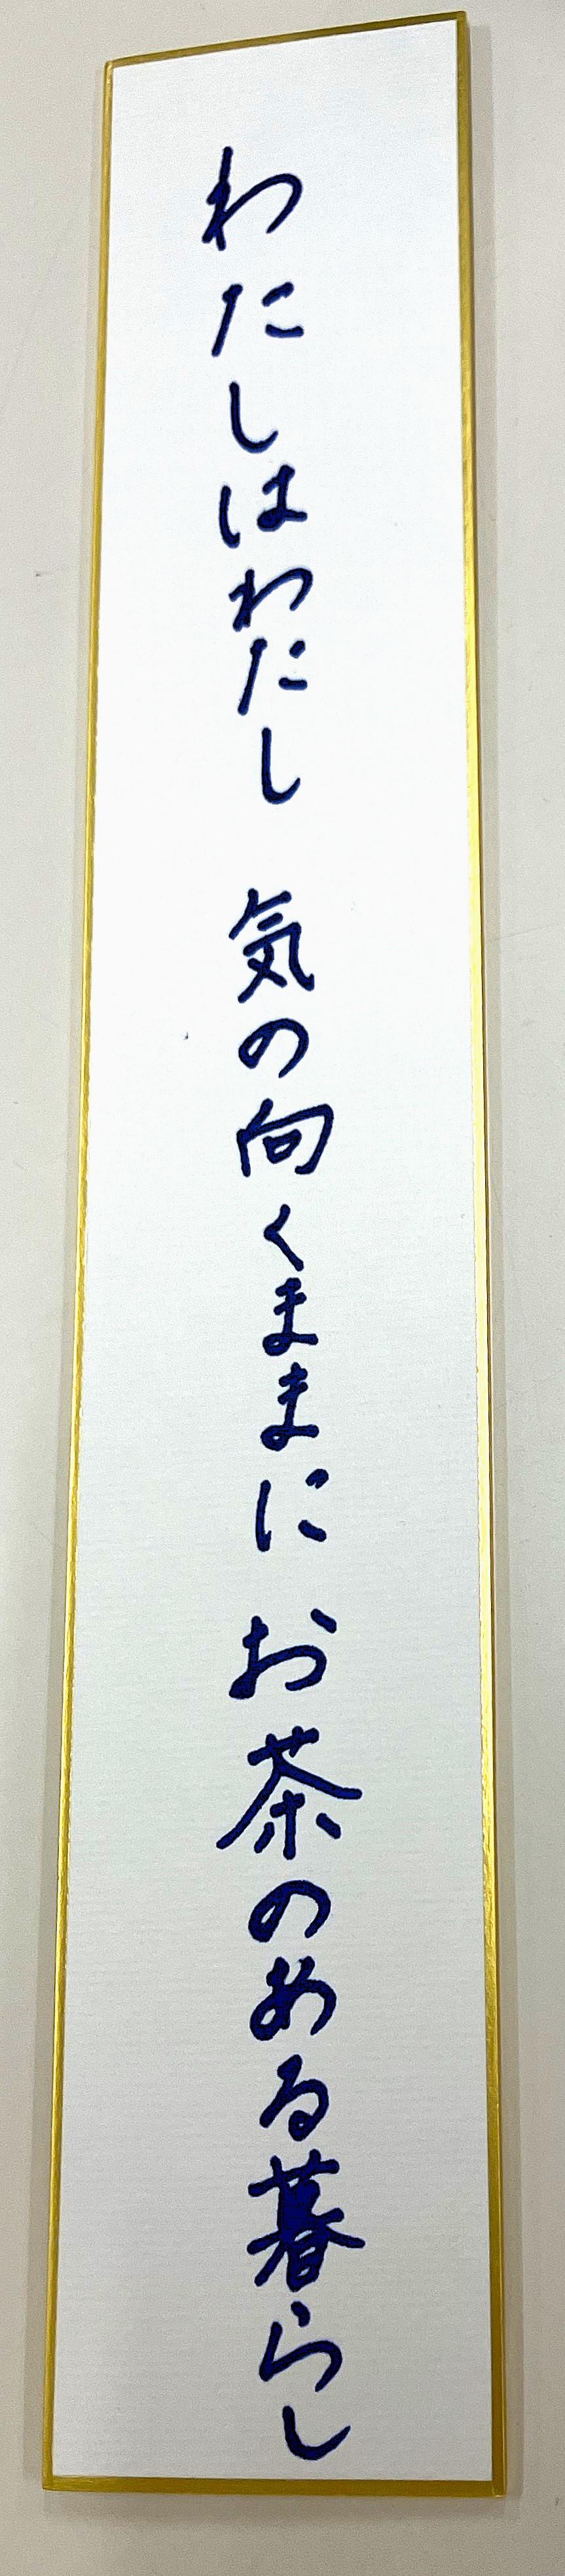 わたしはわたし 気の向くままに お茶のある暮らし